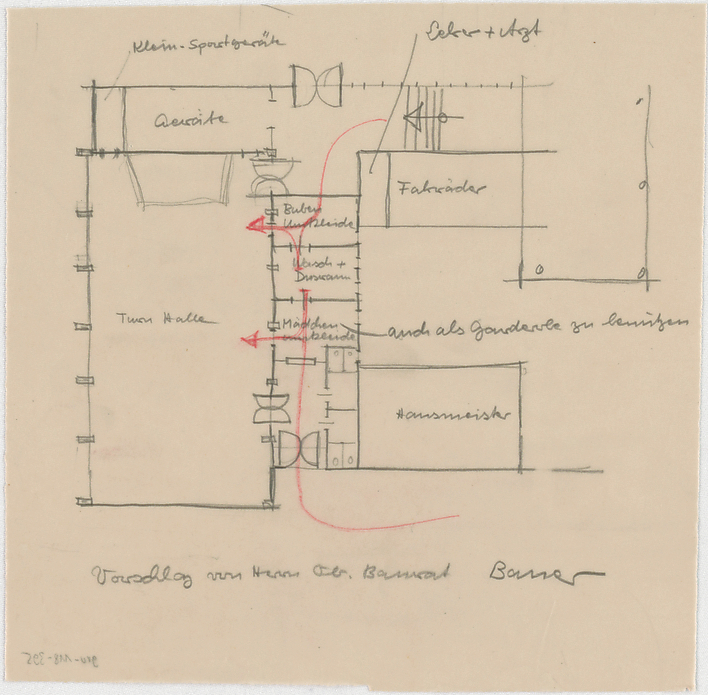 Klein-Sportgeräte
Lehrer + Arzt
Geräte
Fahrräder
Buben
Umkleide
Wasch +
Duschraum
Turn Halle
Mädchen
umkleide
auch als Garderobe zu benützen
Hausmeister
Vorschlag von Herrn Ob. Baurat Bauer